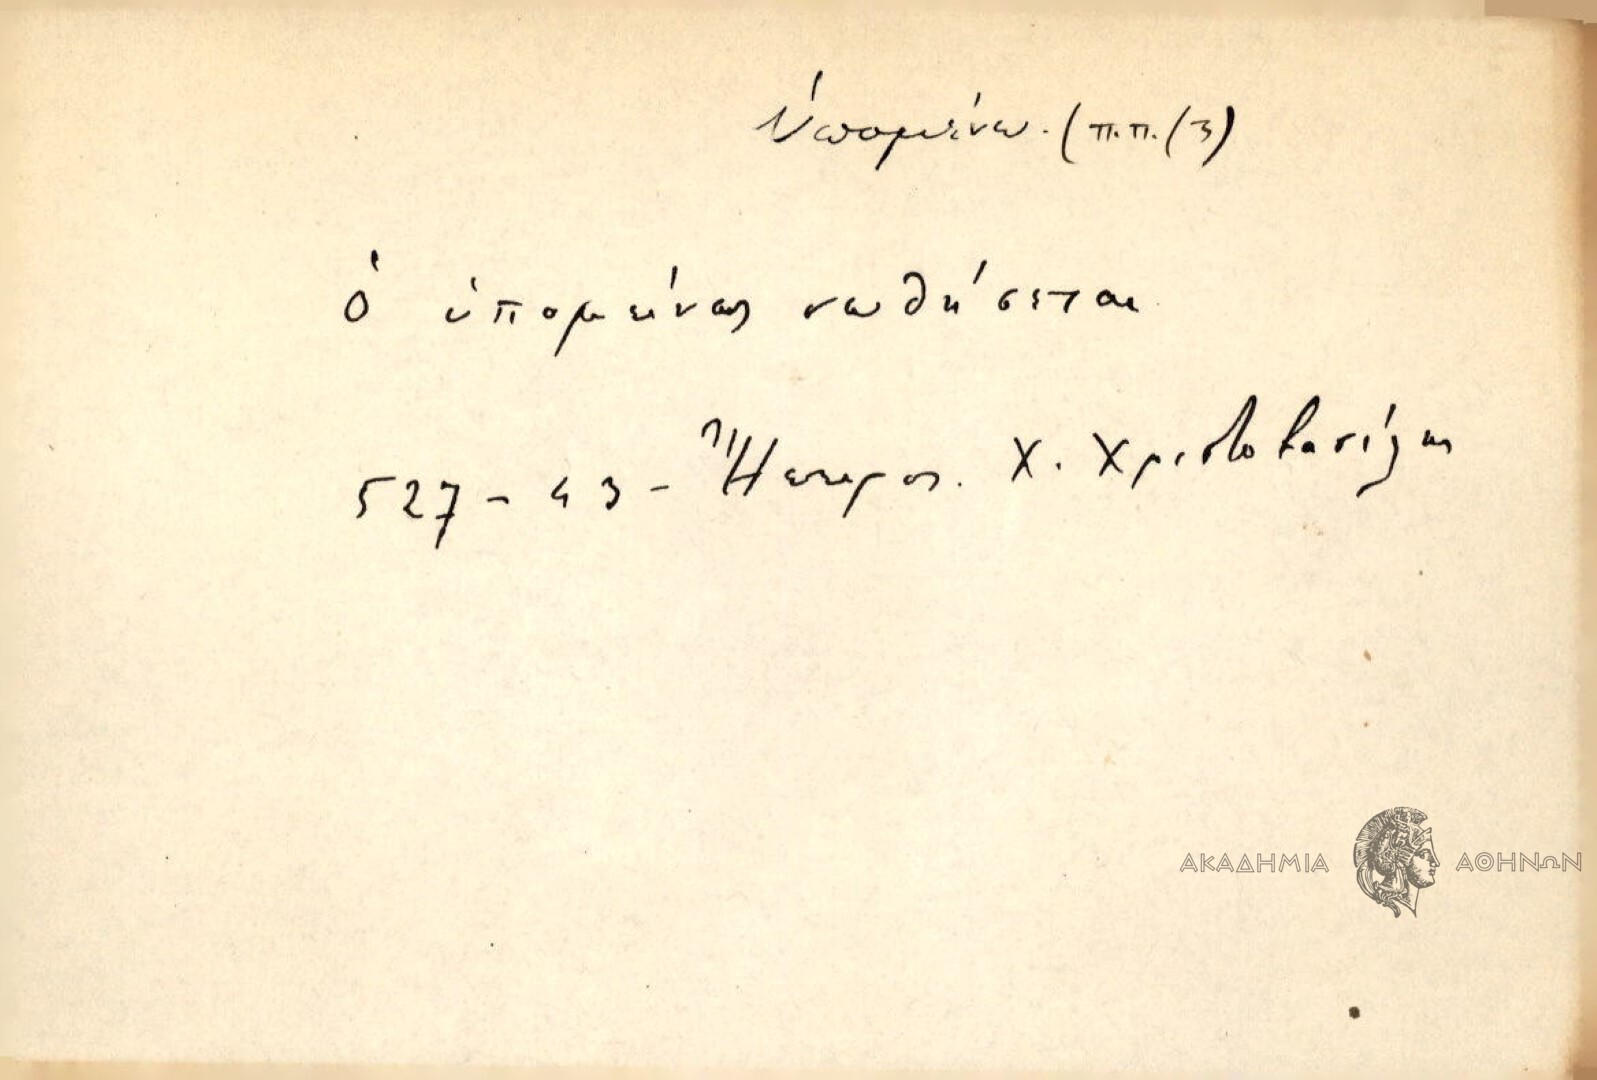 Ὑπομένω. (π.π. (3)
Ὁ ὑπομείνας σωθήσεται
527 - 43 - Ἤπειρος. Χ. Χριστοβασίλης
ΑΚΑΔΗΜΙΑ ΑΘΗΝΩΝ